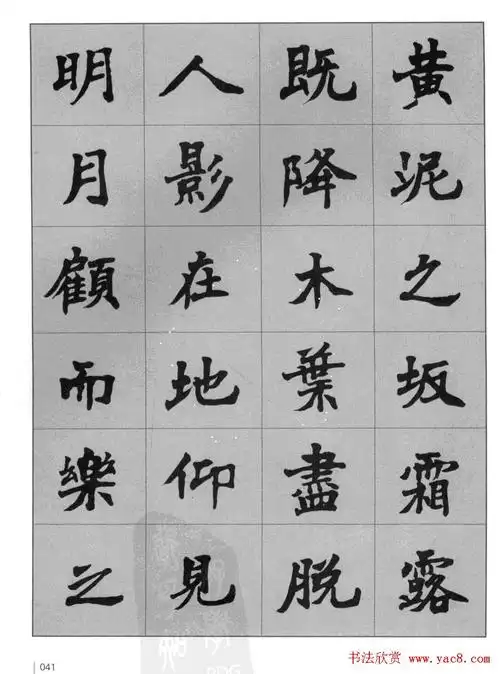 黄泥之坂霜露
既降木葉盡脱
人影在地仰見
明月顧而樂之
041
书法欣赏 www.yac8.com